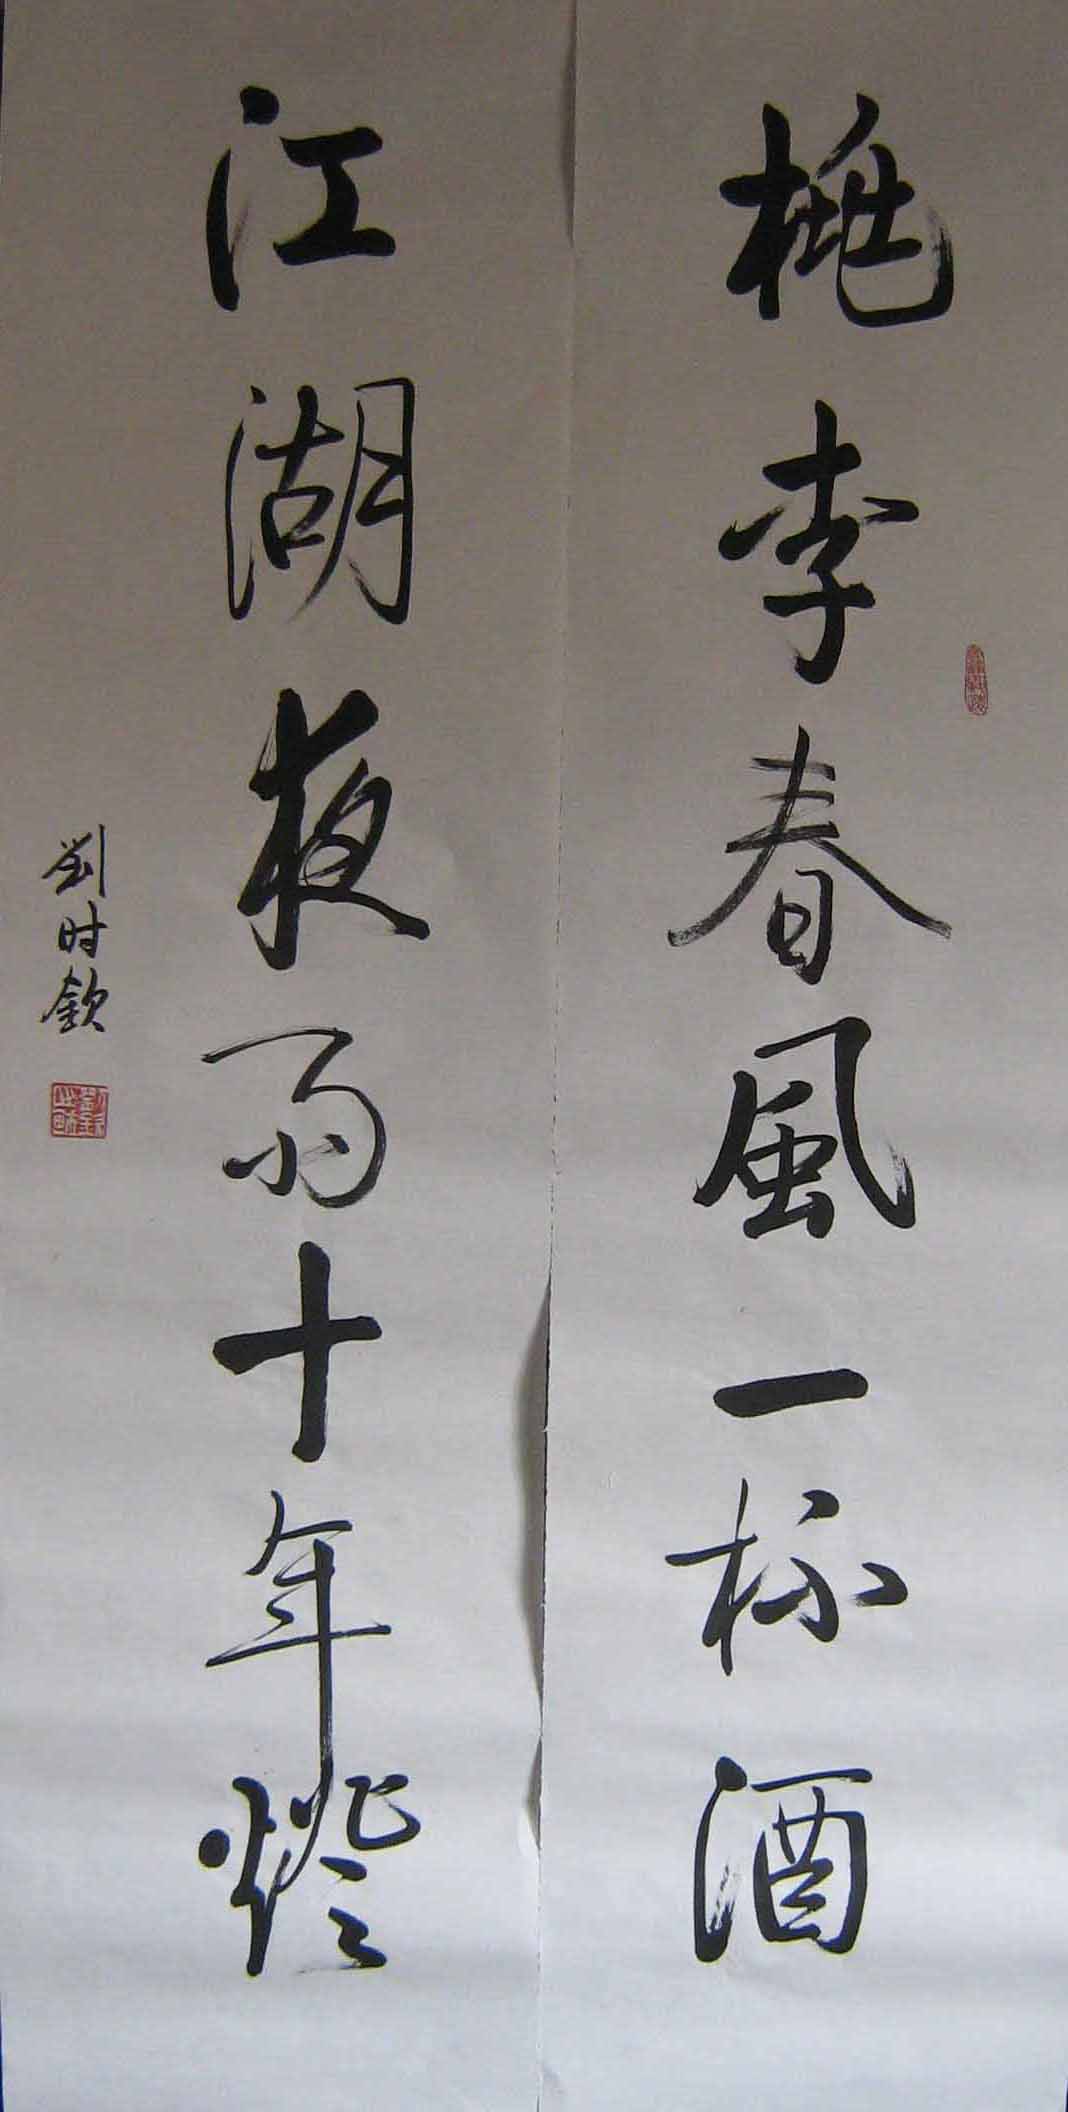 桃李春風一杯酒
江湖夜雨十年燈
劉时欽